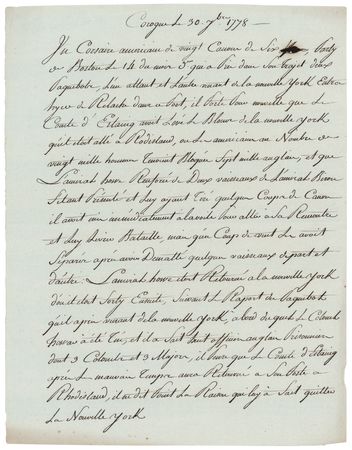 Corogne Le 30. 7bre 1778 —
Un Corsaire americain de vingt Canons de Six Party
de Boston Le 14 du mois qui a Pris dans Son trajet deux
Paquebots L'un allant et L'autre venant de la nouvelle York Entre
hyer de Relache dans ce Port, il Porte Pour nouvelle que Le
Comte d'Estaing avoit Levé Le Blocus de la nouvelle york
qu'il etoit allé a Rodisland, ou Les americains au Nombre de
vingt mille hommes tenoient Bloqué Sept mille anglais, et que
Lamiral howe Renforcé de Deux vaisseaux de L'amiral Biron
S'etant Presenté et Luy ayant Tiré quelques Coups de Canon
il avoit mis immediatement a la voile Pour aller a Sa Rencontre
et Luy Livrer Bataille, mais qu'un Coup de vent Les avoit
Separés apres avoir Dematté quelques vaisseaux de part et
d'autre. Lamiral howe etoit Retourné a la nouvelle York
d'ou il etoit Sorty Ensuite, Suivant Le Raport du Paquebot
qu'il a pris venant de la nouvelle York, a bord du quel Le Colonel
a été Tué, et il a Sait tant officiers anglais Prisonniers
dont 3 Colonels et 3 Majors, il que Le Comte d'Estaing
apres Le mauvais Temps avoit Retourné a Son Poste a
Rhodisland, il ne dit Point La Raison qui Luy a Fait quitter
La Nouvelle York